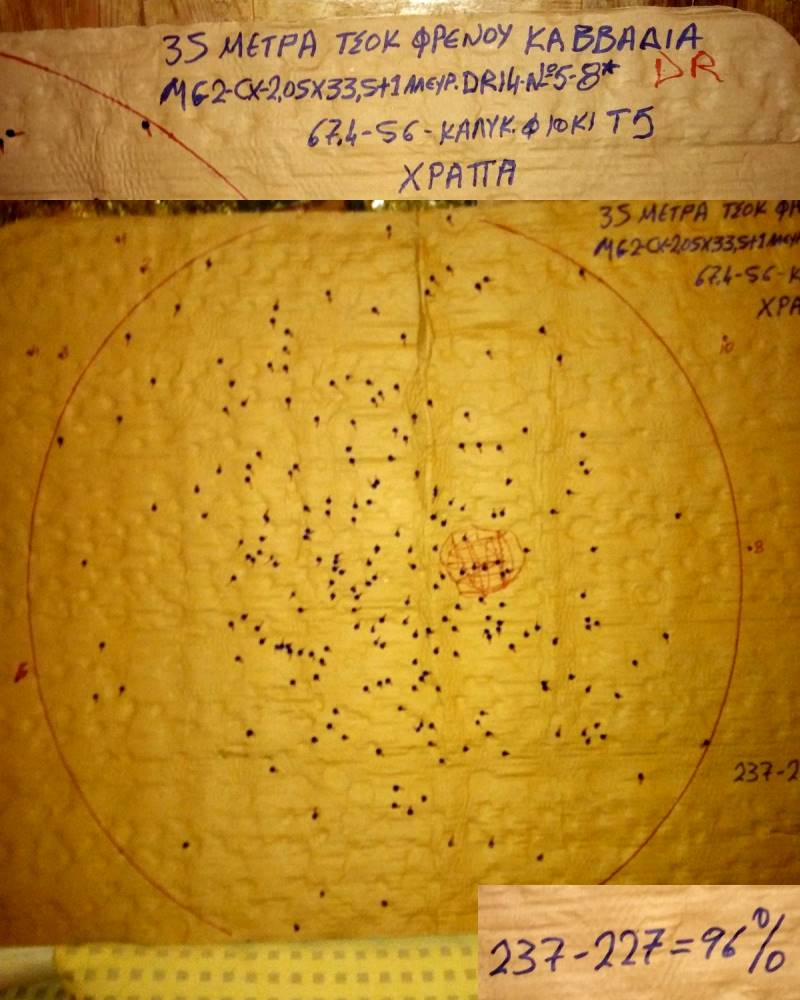 35 ΜΕΤΡΑ ΤΣΟΚ ΦΡΕΝΟΥ ΚΑΒΒΑΔΙΑ
ΜG2-CX-2,05X33,5+1ΑΛΕΥΡ.DR14-Nº5-8*
DR
67,4-56-ΚΑΛΥΚ.ΦΙΟΚΙ Τ5
ΧΡΑΠΑ
35 ΜΕΤΡΑ ΤΣΟΚ ΦΡ
ΜG2-CX-2,05X33,5+1ΑΛΕΥΡ
67,4-56-Κ
ΧΡΑ
10
8
237-2
237-227=96%